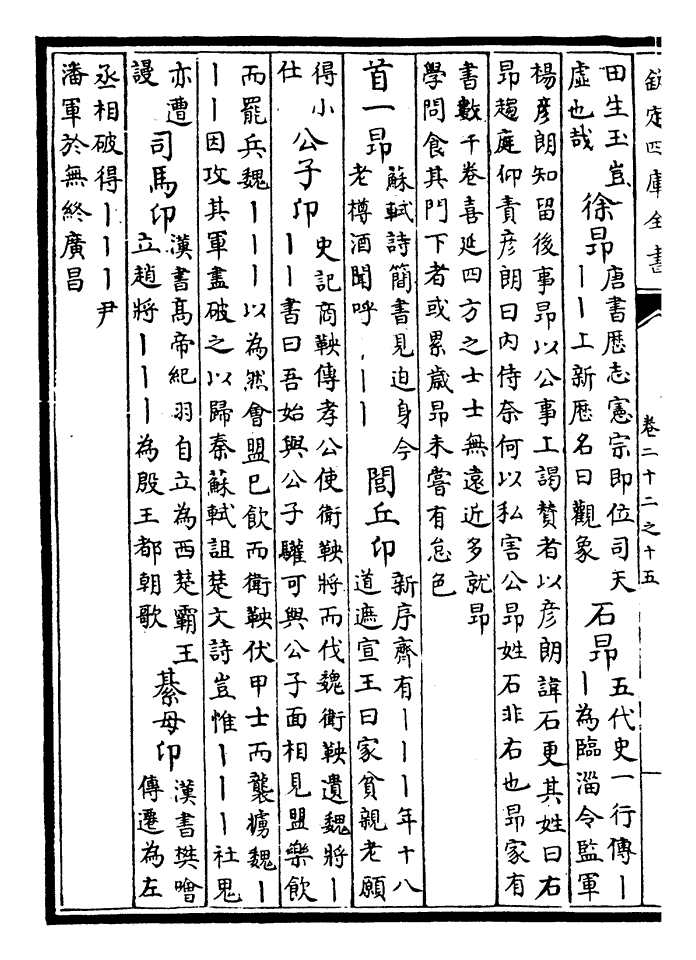 欽定四庫全書
卷二十二之十五
田生玉豈
虛也哉
徐昂
唐書歴志憲宗即位司天
丨丨上新歴名曰觀象
石昂
五代史一行傳丨
丨為臨淄令監軍
楊彥朗知留後事昂以公事上謁賛者以彥朗諱石更其姓曰右
昂趨庭仰責彥朗曰内侍奈何以私害公昂姓石非右也昂家有
書數千卷喜延四方之士士無遠近多就昂
學問食其門下者或累歲昂未嘗有怠色
首一昂
蘇軾詩簡書見迫身今
老樽酒聞呼丨丨丨
閭丘卬
新序齊有丨丨丨年十八
道遮宣王曰家貧親老願
得小
仕
公子卬
史記商鞅傳孝公使衛鞅將而伐魏衛鞅遺魏將丨
丨丨書曰吾始與公子驩可與公子面相見盟樂飲
而罷兵魏丨丨丨以為然會盟已飲而衛鞅伏甲士而襲擄魏丨
丨丨因攻其軍盡破之以歸秦蘇軾詛楚文詩豈惟丨丨丨社鬼
亦遭
謾
司馬卬
漢書髙帝紀羽自立為西楚霸王
立趙將丨丨丨為殷王都朝歌
綦母卬
漢書樊噲
傳遷為左
丞相破得丨丨丨尹
潘軍於無終廣昌